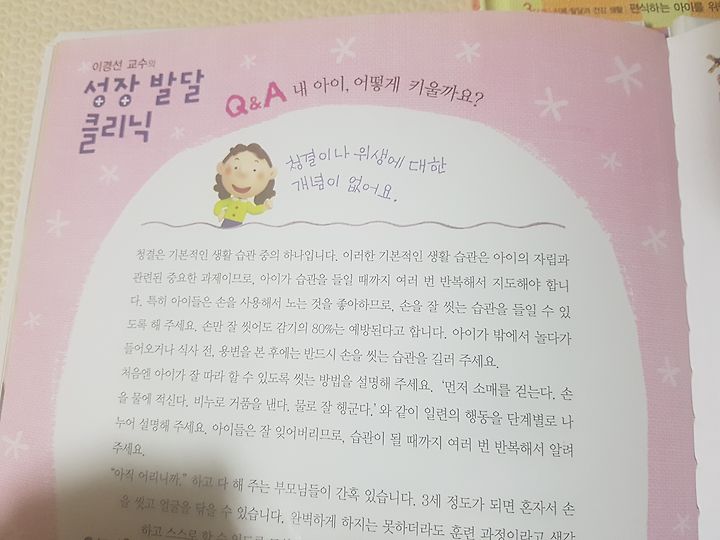 편식하는 아이를 위
이경선 교수의
성장 발달
클리닉
Q&A 내 아이, 어떻게 키울까요?
청결이나 위생에 대한
개념이 없어요.
청결은 기본적인 생활 습관 중의 하나입니다. 이러한 기본적인 생활 습관은 아이의 자립과
관련된 중요한 과제이므로, 아이가 습관을 들일 때까지 여러 번 반복해서 지도해야 합니
다. 특히 아이들은 손을 사용해서 노는 것을 좋아하므로, 손을 잘 씻는 습관을 들일 수 있
도록 해 주세요. 손만 잘 씻어도 감기의 80%는 예방된다고 합니다. 아이가 밖에서 놀다가
들어오거나 식사 전, 용변을 본 후에는 반드시 손을 씻는 습관을 길러 주세요.
처음엔 아이가 잘 따라 할 수 있도록 씻는 방법을 설명해 주세요. ‘먼저 소매를 걷는다. 손
을 물에 적신다. 비누로 거품을 낸다. 물로 잘 헹군다.’와 같이 일련의 행동을 단계별로 나
누어 설명해 주세요. 아이들은 잘 잊어버리므로, 습관이 될 때까지 여러 번 반복해서 알려
주세요.
“아직 어리니까.” 하고 다 해 주는 부모님들이 간혹 있습니다. 3세 정도가 되면 혼자서 손
을 씻고 얼굴을 닦을 수 있습니다. 완벽하게 하지는 못하더라도 훈련 과정이라고 생각
하고 스스로 할 수 있도록